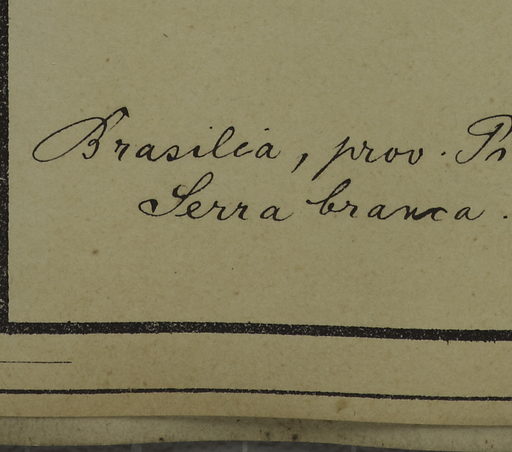 Brasilia, prov.
Serra branca.